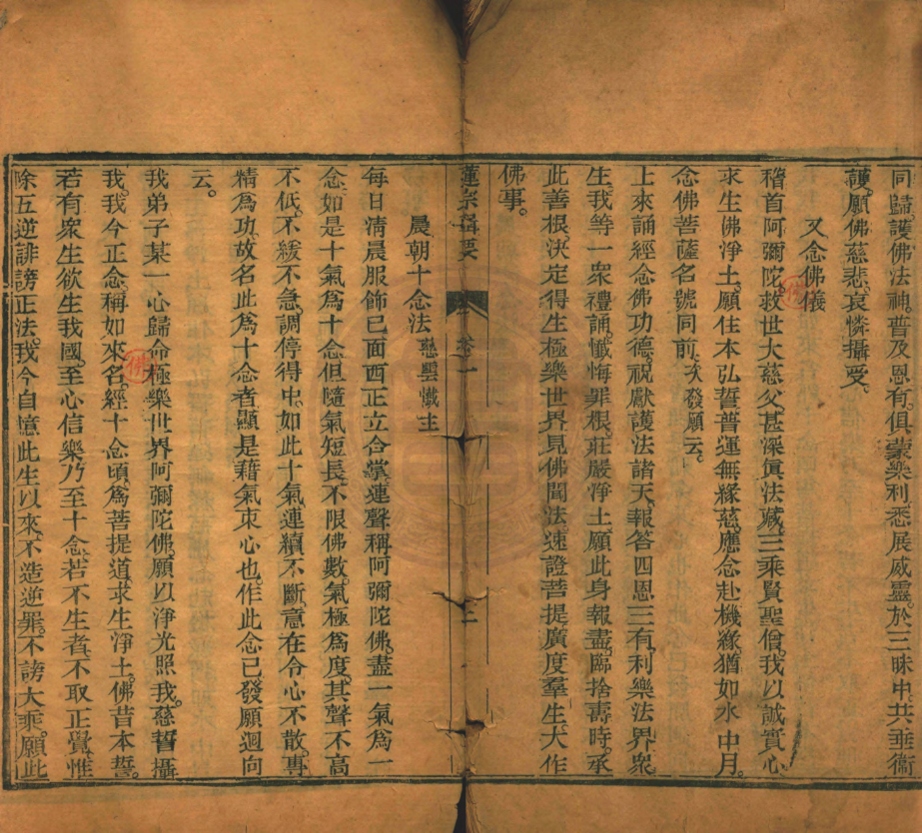 同歸護佛法神。普及恩有。俱蒙樂利。悉展威靈。於三昧中。共垂衞
護。願佛慈悲。哀憐攝受。
又念佛儀
稽首阿彌陀。救世大慈父。甚深眞法藏。三乘賢聖僧。我以誠實心。
求生佛淨土。願住本弘誓。普運無緣慈。應念赴機緣。猶如水中月。
念佛菩薩名號同前。次發願云。
上來誦經念佛功德。祝獻護法諸天。報答四恩三有。利樂法界衆
生。我等一衆禮誦。懺悔罪根。莊嚴淨土。願此身報盡。臨捨壽時。承
此善根。決定得生極樂世界。見佛聞法。速證菩提。廣度羣生。大作
佛事。
蓮宗輯要 卷一 二
晨朝十念法 慈雲懺主
每日清晨服飾已。面西正立合掌。連聲稱阿彌陀佛。盡一氣爲一
念。如是十氣爲十念。但隨氣短長。不限佛數。氣極爲度。其聲不高
不低。不緩不急。調停得中。如此十氣。連續不斷。意在令心不散。專
精爲功。故名此爲十念者。顯是藉氣束心也。作此念已。發願迴向
云。
我弟子某。一心歸命極樂世界阿彌陀佛。願以淨光照我。慈誓攝
我。我今正念。稱如來名。經十念頃。爲菩提道。求生淨土。佛昔本誓。
若有衆生欲生我國。至心信樂。乃至十念。若不生者。不取正覺。惟
除五逆誹謗正法。我今自憶此生以來。不造逆罪。不謗大乘。願此